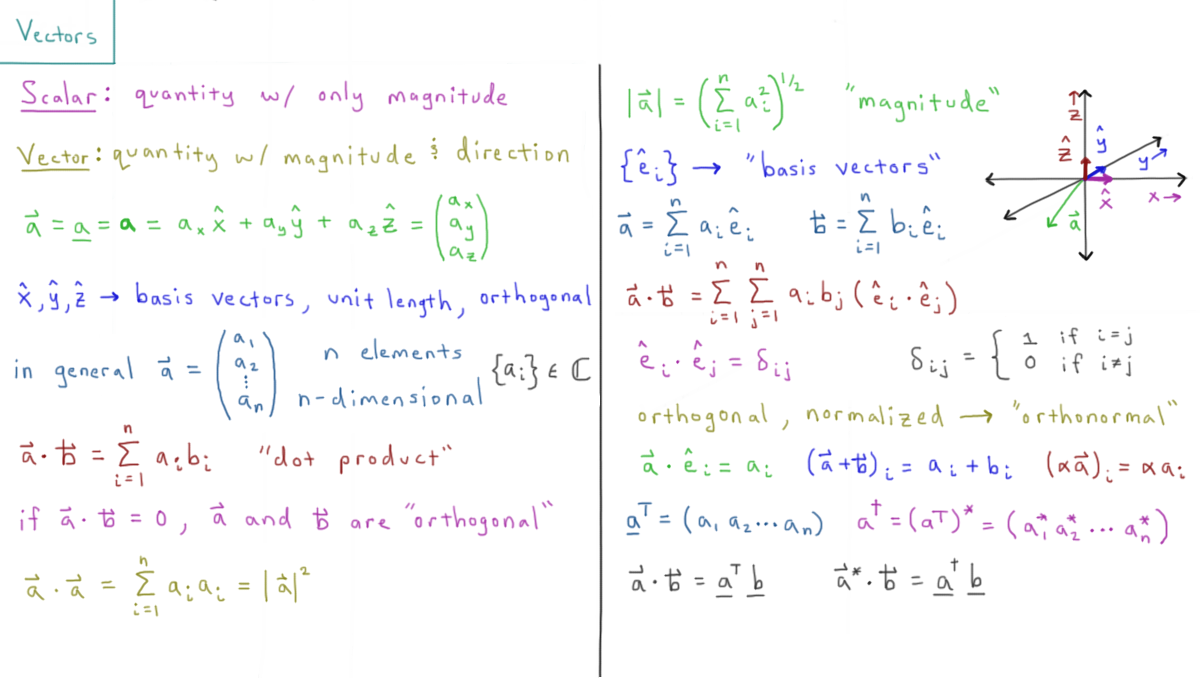 Vectors
Scalar: quantity w/ only magnitude
Vector: quantity w/ magnitude & direction
a⃗ = a̲ = 𝐚 = aₓx̂ + a_yŷ + a_zẑ = (aₓ a_y a_z)
x̂, ŷ, ẑ → basis vectors, unit length, orthogonal
in general a⃗ = (a₁ a₂ ⋮ aₙ) n elements n-dimensional {aᵢ} ∈ ℂ
a⃗ · b⃗ = Σⁿᵢ₌₁ aᵢbᵢ "dot product"
if a⃗ · b⃗ = 0, a⃗ and b⃗ are "orthogonal"
a⃗ · a⃗ = Σⁿᵢ₌₁ aᵢaᵢ = |a⃗|²
|a⃗| = (Σⁿᵢ₌₁ aᵢ²)^1/2 "magnitude"
{êᵢ} → "basis vectors"
a⃗ = Σⁿᵢ₌₁ aᵢêᵢ b⃗ = Σⁿᵢ₌₁ bᵢêᵢ
z→
ẑ
ŷ
y→
x̂
x→
a⃗
a⃗ · b⃗ = Σⁿᵢ₌₁ Σⁿⱼ₌₁ aᵢbⱼ(êᵢ · êⱼ)
êᵢ · êⱼ = δᵢⱼ δᵢⱼ = { 1 if i=j 0 if i≠j
orthogonal, normalized → "orthonormal"
a⃗ · êᵢ = aᵢ (a⃗+b⃗)ᵢ = aᵢ + bᵢ (αa⃗)ᵢ = αaᵢ
a̲ᵀ = (a₁ a₂ ⋯ aₙ) a† = (aᵀ)* = (a₁* a₂* ⋯ aₙ*)
a⃗ · b⃗ = a̲ᵀ b̲ a⃗* · b⃗ = a̲† b̲